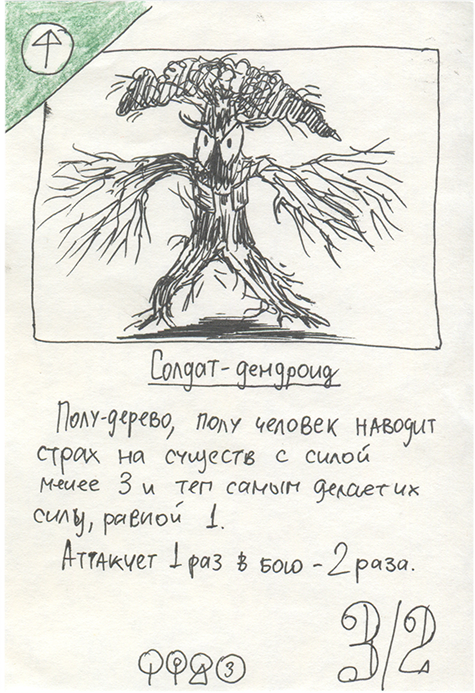 Солдат-дендроид
Полу-дерево, полу человек наводит
страх на существ с силой
менее 3 и тем самым делает их
силу, равной 1.
Аттакует 1 раз в бою - 2 раза.
3/2
3